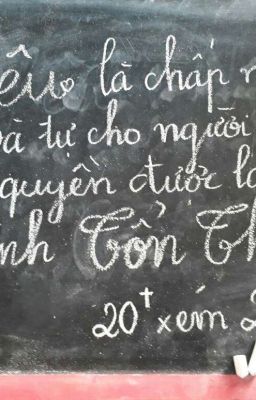 êu là chấp n
à tự cho người
quyền được l
nh Tổn Th
20⁺ xém 2